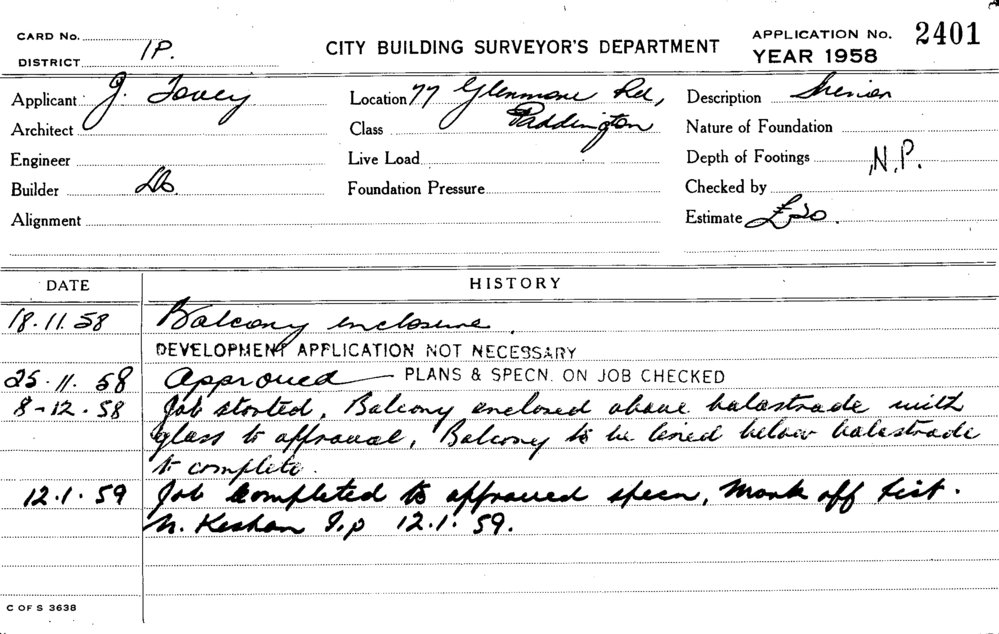 CARD No.
DISTRICT 1P.
CITY BUILDING SURVEYOR'S DEPARTMENT
APPLICATION No. 2401
YEAR 1958
Applicant J. Tovey
Location 77 Glenmore Rd,
Paddington
Description
Architect
Class
Nature of Foundation
Engineer
Live Load
Depth of Footings N.P.
Builder
Foundation Pressure
Checked by
Alignment
Estimate £20.
DATE HISTORY
18.11.58 Balcony enclosure.
DEVELOPMENT APPLICATION NOT NECESSARY
25.11.58 Approved — PLANS & SPECN. ON JOB CHECKED
8-12.58 Job started, Balcony enclosed above balastrade with
glass to approval, Balcony to be lined below balastrade
to complete.
12.1.59 Job completed to approved specn, Mark off list.
12.1.59.
C OF S 3638